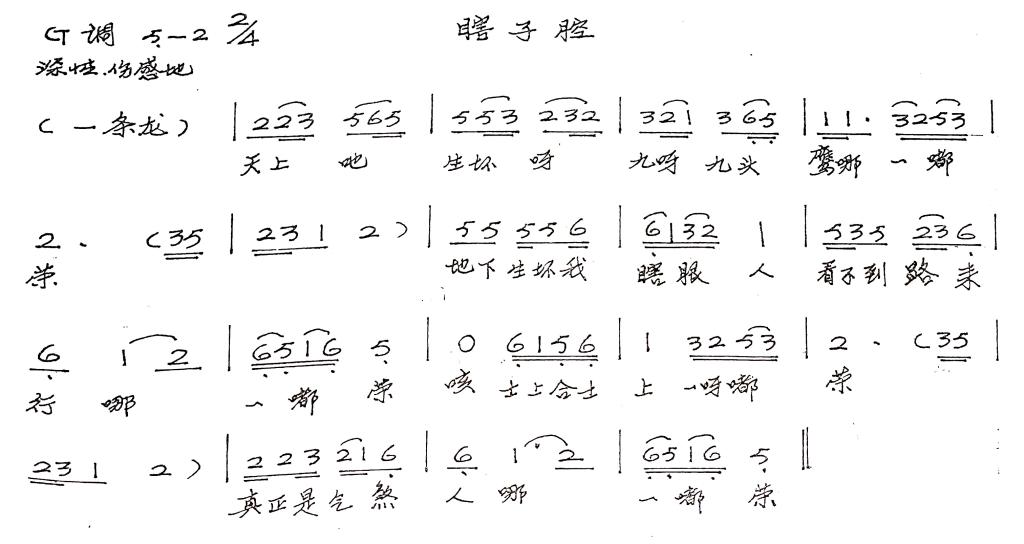 G调 5－2 2/4 瞎子腔
深情.伤感地
(一条龙) | 223 565 | 553 232 | 321 365 | 11. 3253 |
天上 吔 生坏 呀 九呀 九头 鹰哪 一 嘟
2. (35 | 231 2) | 55 556 | 6132 1 | 535 236 |
荣 地下生坏我 瞎眼 人 看不到路来
6 12 | 6516 5 | 0 6156 | 1 3253 | 2. (35 |
行 哪 一嘟 荣 咳 士上合士 上 一呀嘟 荣
231 2) | 223 216 | 6 12 | 6516 5 ‖
真正是乞煞 人 哪 一嘟 荣